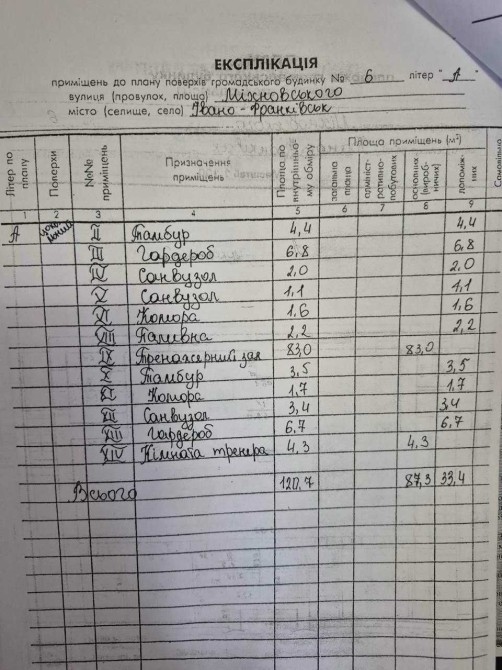 ЕКСПЛІКАЦІЯ
приміщень до плану поверхів громадського будинку № 6 літер "А"
вулиця (провулок, площа) Міхновського
місто (селище, село) Івано-Франківськ
Літер по плану Поверхи №№ приміщень Призначення приміщень Площа по внутрішньому обміру Площа приміщень (м²)
загальна площа адміністративно-побутових основних (виробничих) допоміжних
1 2 3 4 5 6 7 8 9
А II Тамбур 4,4 4,4
III Гардероб 6,8 6,8
IV Санвузол 2,0 2,0
V Санвузол 1,1 1,1
VI Комора 1,6 1,6
VIII Паливна 2,2 2,2
IX Тренажерний зал 83,0 83,0
X Тамбур 3,5 3,5
XI Комора 1,7 1,7
XII Санвузол 3,4 3,4
XIII Гардероб 6,7 6,7
XIV Кімната тренера 4,3 4,3
Всього 120,7 87,3 33,4